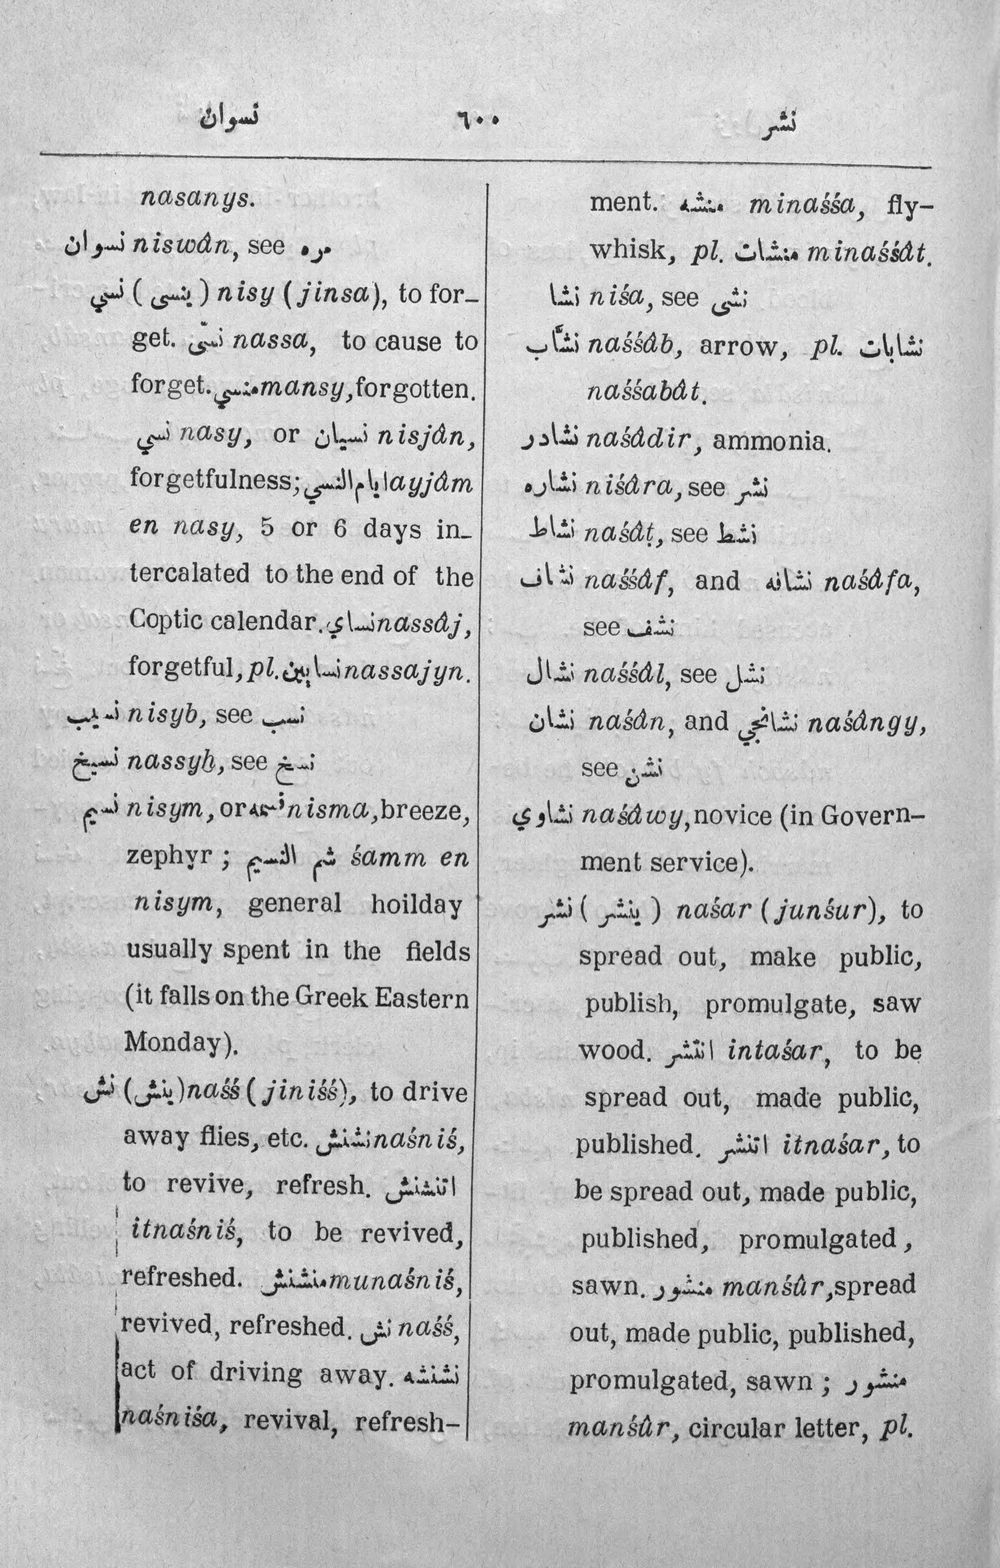 نسوان ٦٠٠ نشر
nasanys.
نسوان niswân, see مره
نسي (ينسى) nisy (jinsa), to for-
get. نسّى nassa, to cause to
forget. منسي mansy, forgotten.
نسي nasy, or نسيان nisjân,
forgetfulness; ايام النسي ayjâm
en nasy, 5 or 6 days in-
tercalated to the end of the
Coptic calendar. نساي nassâj,
forgetful, pl. نسايين nassajyn.
نسيب nisyb, see نسب
نسيخ nassyḫ, see نسخ
نسيم nisym, or نسمه nisma, breeze,
zephyr ; شم النسيم śamm en
nisym, general hoilday
usually spent in the fields
(it falls on the Greek Eastern
Monday).
نش (ينش) naśś (jiniśś), to drive
away flies, etc. نشنش naśniś,
to revive, refresh. اتنشنش
itnaśniś, to be revived,
refreshed. منشنش munaśniś,
revived, refreshed. نش naśś,
act of driving away. نشنشه
naśniśa, revival, refresh-
ment. منشه minaśśa, fly-
whisk, pl. منشات minaśśât.
نشا niśa, see نشى
نشّاب naśśâb, arrow, pl. نشابات
naśśabât.
نشادر naśâdir, ammonia.
نشاره niśâra, see نشر
نشاط naśâṭ, see نشط
نشاف naśśâf, and نشافه naśâfa,
see نشف
نشال naśśâl, see نشل
نشان naśân, and نشانجي naśângy,
see نشن
نشاوي naśâwy, novice (in Govern-
ment service).
نشر (ينشر) naśar (junśur), to
spread out, make public,
publish, promulgate, saw
wood. انتشر intaśar, to be
spread out, made public,
published. اتنشر itnaśar, to
be spread out, made public,
published, promulgated,
sawn. منشور manśûr, spread
out, made public, published,
promulgated, sawn ; منشور
manśûr, circular letter, pl.